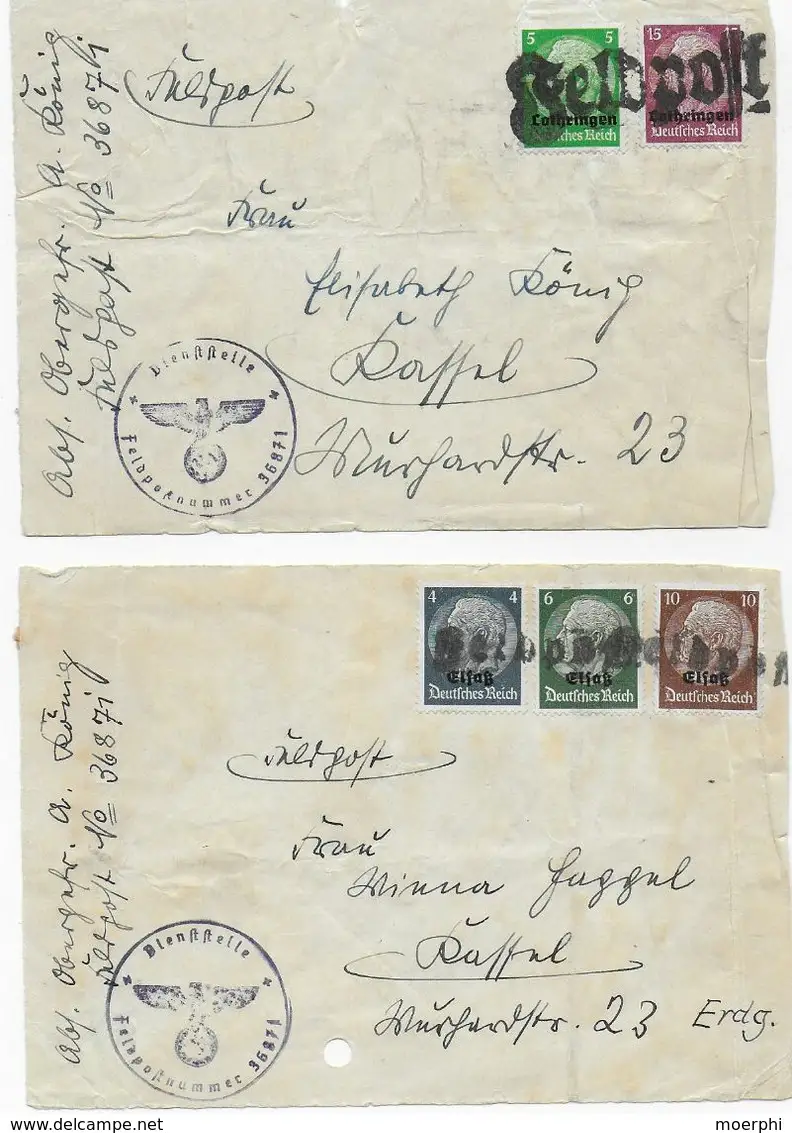 5 5
15
Feldpost
Lothringen
Deutsches Reich
Lothringen
Deutsches Reich
Feldpost
Abs. Obergefr. A. König
Feldpost No 36871
Frau
Elisabeth König
Kassel
Murhardstr. 23
Dienststelle
Feldpostnummer 36871
4 4
6 6
10 10
Feldpost Feldpost
Elsaß
Elsaß
Elsaß
Deutsches Reich
Deutsches Reich
Deutsches Reich
Feldpost
Abs. Obergefr. A. König
Feldpost No 36871
Frau
Minna Happel
Kassel
Murhardstr. 23 Erdg.
Dienststelle
Feldpostnummer 36871
moerphi